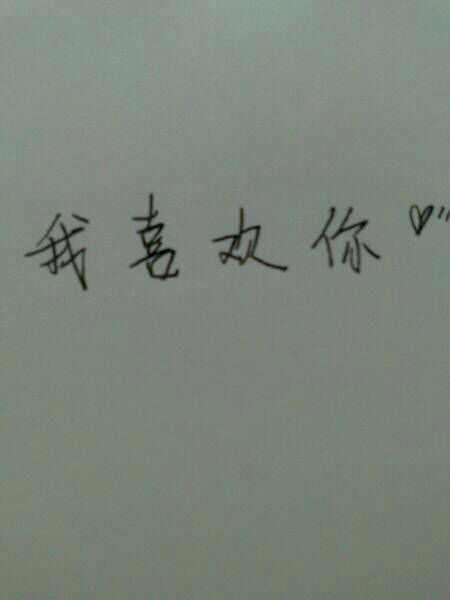 我喜欢你♡"